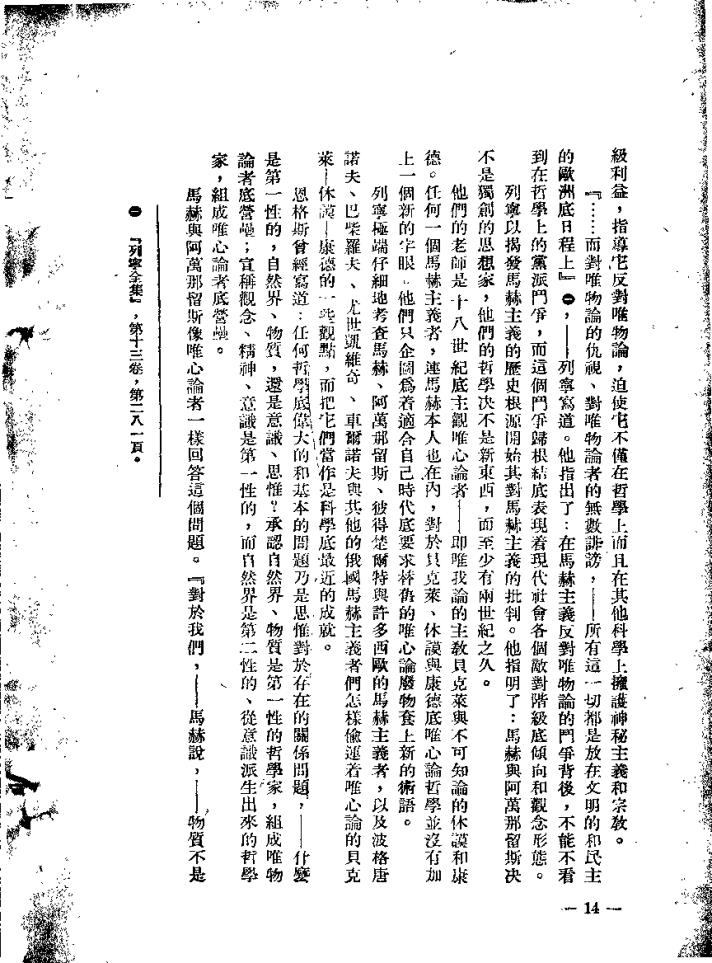 級利益，指導它反對唯物論，迫使它不僅在哲學上而且在其他科學上擁護神秘主義和宗教。
『……而對唯物論的仇視、對唯物論者的無數誹謗，——所有這一切都是放在文明的和民主
的歐洲底日程上』㊀，——列寧寫道。他指出了：在馬赫主義反對唯物論的鬥爭背後，不能不看
到在哲學上的黨派鬥爭，而這個鬥爭歸根結底表現着現代社會各個敵對階級底傾向和觀念形態。
列寧以揭發馬赫主義的歷史根源開始其對馬赫主義的批判。他指明了：馬赫與阿萬那留斯決
不是獨創的思想家，他們的哲學決不是新東西，而至少有兩世紀之久。
他們的老師是十八世紀底主觀唯心論者——即唯我論的主教貝克萊與不可知論的休謨和康
德。任何一個馬赫主義者，連馬赫本人也在內，對於貝克萊、休謨與康德底唯心論哲學並沒有加
上一個新的字眼。他們只企圖爲着適合自己時代底要求替舊的唯心論廢物套上新的術語。
列寧極端仔細地考查馬赫、阿萬那留斯、彼得楚爾特與許多西歐的馬赫主義者，以及波格唐
諾夫、巴柴羅夫、尤世凱維奇、車爾諾夫與其他的俄國馬赫主義者們怎樣偷運着唯心論的貝克
萊—休謨—康德的一些觀點，而把它們當作是科學底最近的成就。
恩格斯曾經寫道：任何哲學底偉大的和基本的問題乃是思惟對於存在的關係問題，——什麼
是第一性的，自然界、物質，還是意識、思惟？承認自然界、物質是第一性的哲學家，組成唯物
論者底營壘；宣稱觀念、精神、意識是第一性的，而自然界是第二性的、從意識派生出來的哲學
家，組成唯心論者底營壘。
馬赫與阿萬那留斯像唯心論者一樣回答這個問題。『對於我們，——馬赫說，——物質不是
㊀ 『列寧全集』，第十三卷，第二八一頁。
— 14 —